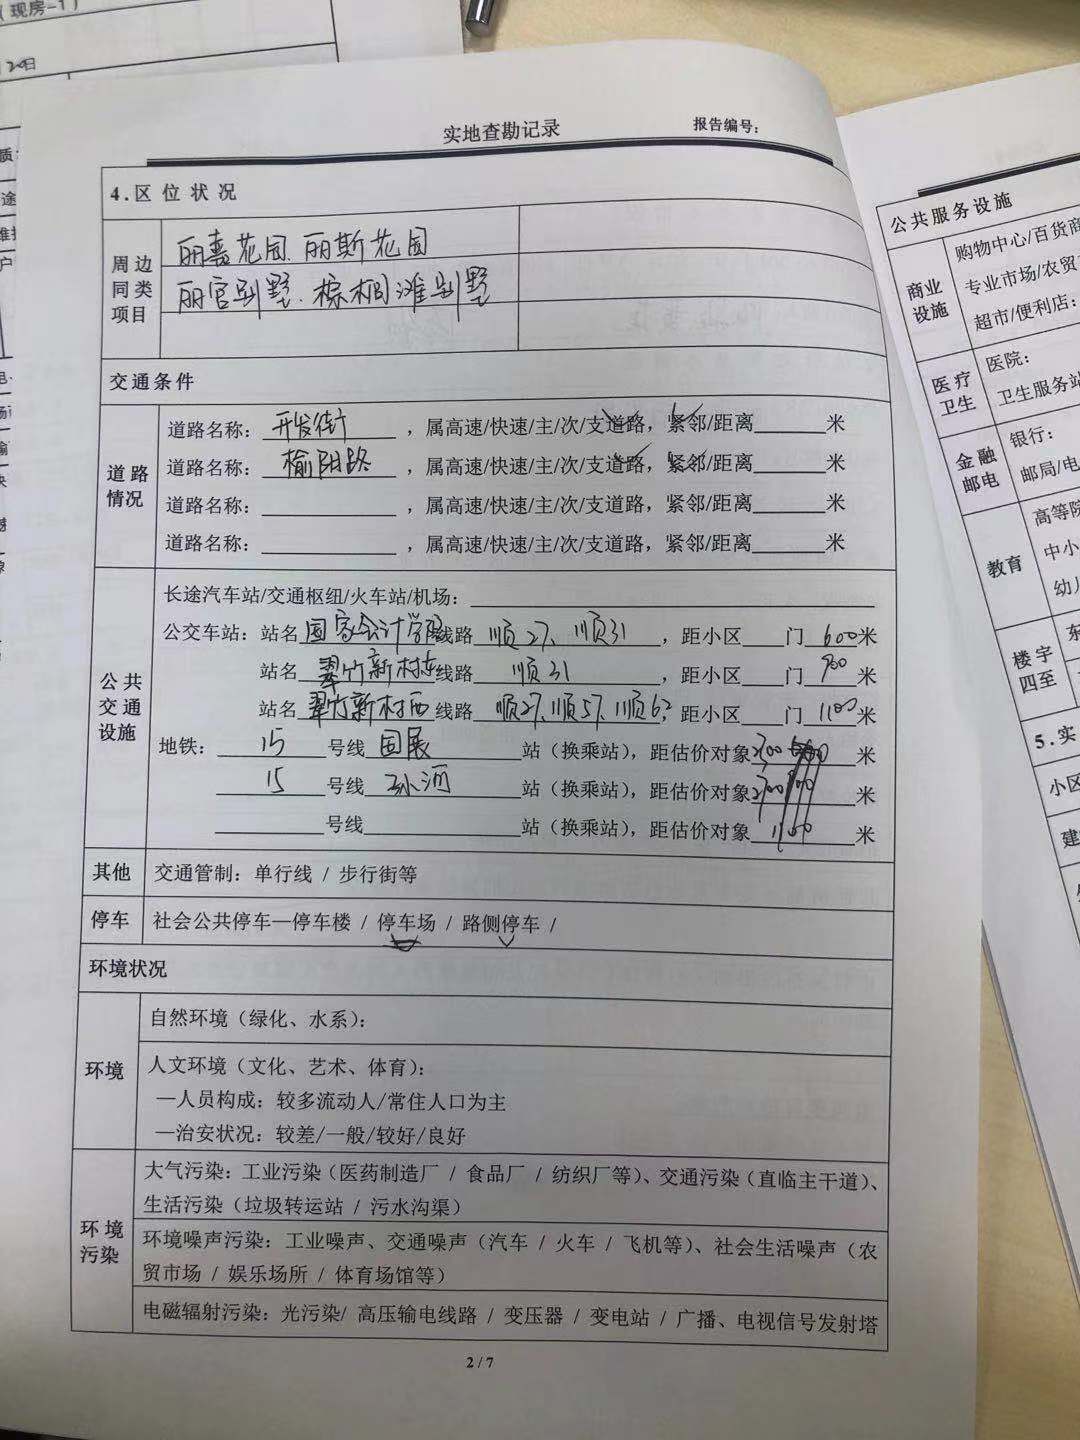 （现房-1）
20日
实地查勘记录
报告编号：
4.区 位 状 况
周 边 同 类 项目
丽嘉花园、丽斯花园
丽宫别墅、棕榈滩别墅
交通条件
道 路 情况
道路名称：开发街，属高速/快速/主/次/支道路，紧邻/距离米
道路名称：榆阳路，属高速/快速/主/次/支道路，紧邻/距离米
道路名称：，属高速/快速/主/次/支道路，紧邻/距离米
道路名称：，属高速/快速/主/次/支道路，紧邻/距离米
公 共 交 通 设施
长途汽车站/交通枢纽/火车站/机场：
公交车站：站名国家会计学院线路顺27、顺31，距小区门600米
站名翠竹新村东线路顺31，距小区门900米
站名翠竹新村西线路顺27、顺57、顺62，距小区门1100米
地铁：15号线国展站（换乘站），距估价对象米
15号线孙河站（换乘站），距估价对象米
号线站（换乘站），距估价对象米
其他
交通管制：单行线 / 步行街等
停车
社会公共停车—停车楼 / 停车场 / 路侧停车 /
环境状况
环境
自然环境（绿化、水系）：
人文环境（文化、艺术、体育）：
—人员构成：较多流动人/常住人口为主
—治安状况：较差/一般/较好/良好
环 境 污染
大气污染：工业污染（医药制造厂 / 食品厂 / 纺织厂等）、交通污染（直临主干道）、
生活污染（垃圾转运站 / 污水沟渠）
环境噪声污染：工业噪声、交通噪声（汽车 / 火车 / 飞机等）、社会生活噪声（农
贸市场 / 娱乐场所 / 体育场馆等）
电磁辐射污染：光污染/ 高压输电线路 / 变压器 / 变电站 / 广播、电视信号发射塔
2 / 7
公共服务设施
商业 设施
购物中心/百货商
专业市场/农贸
超市/便利店：
医疗 卫生
医院：
卫生服务站
金融 邮电
银行：
邮局/电
教育
高等院
中小
幼儿
楼宇 四至
东
5.实
小区
建